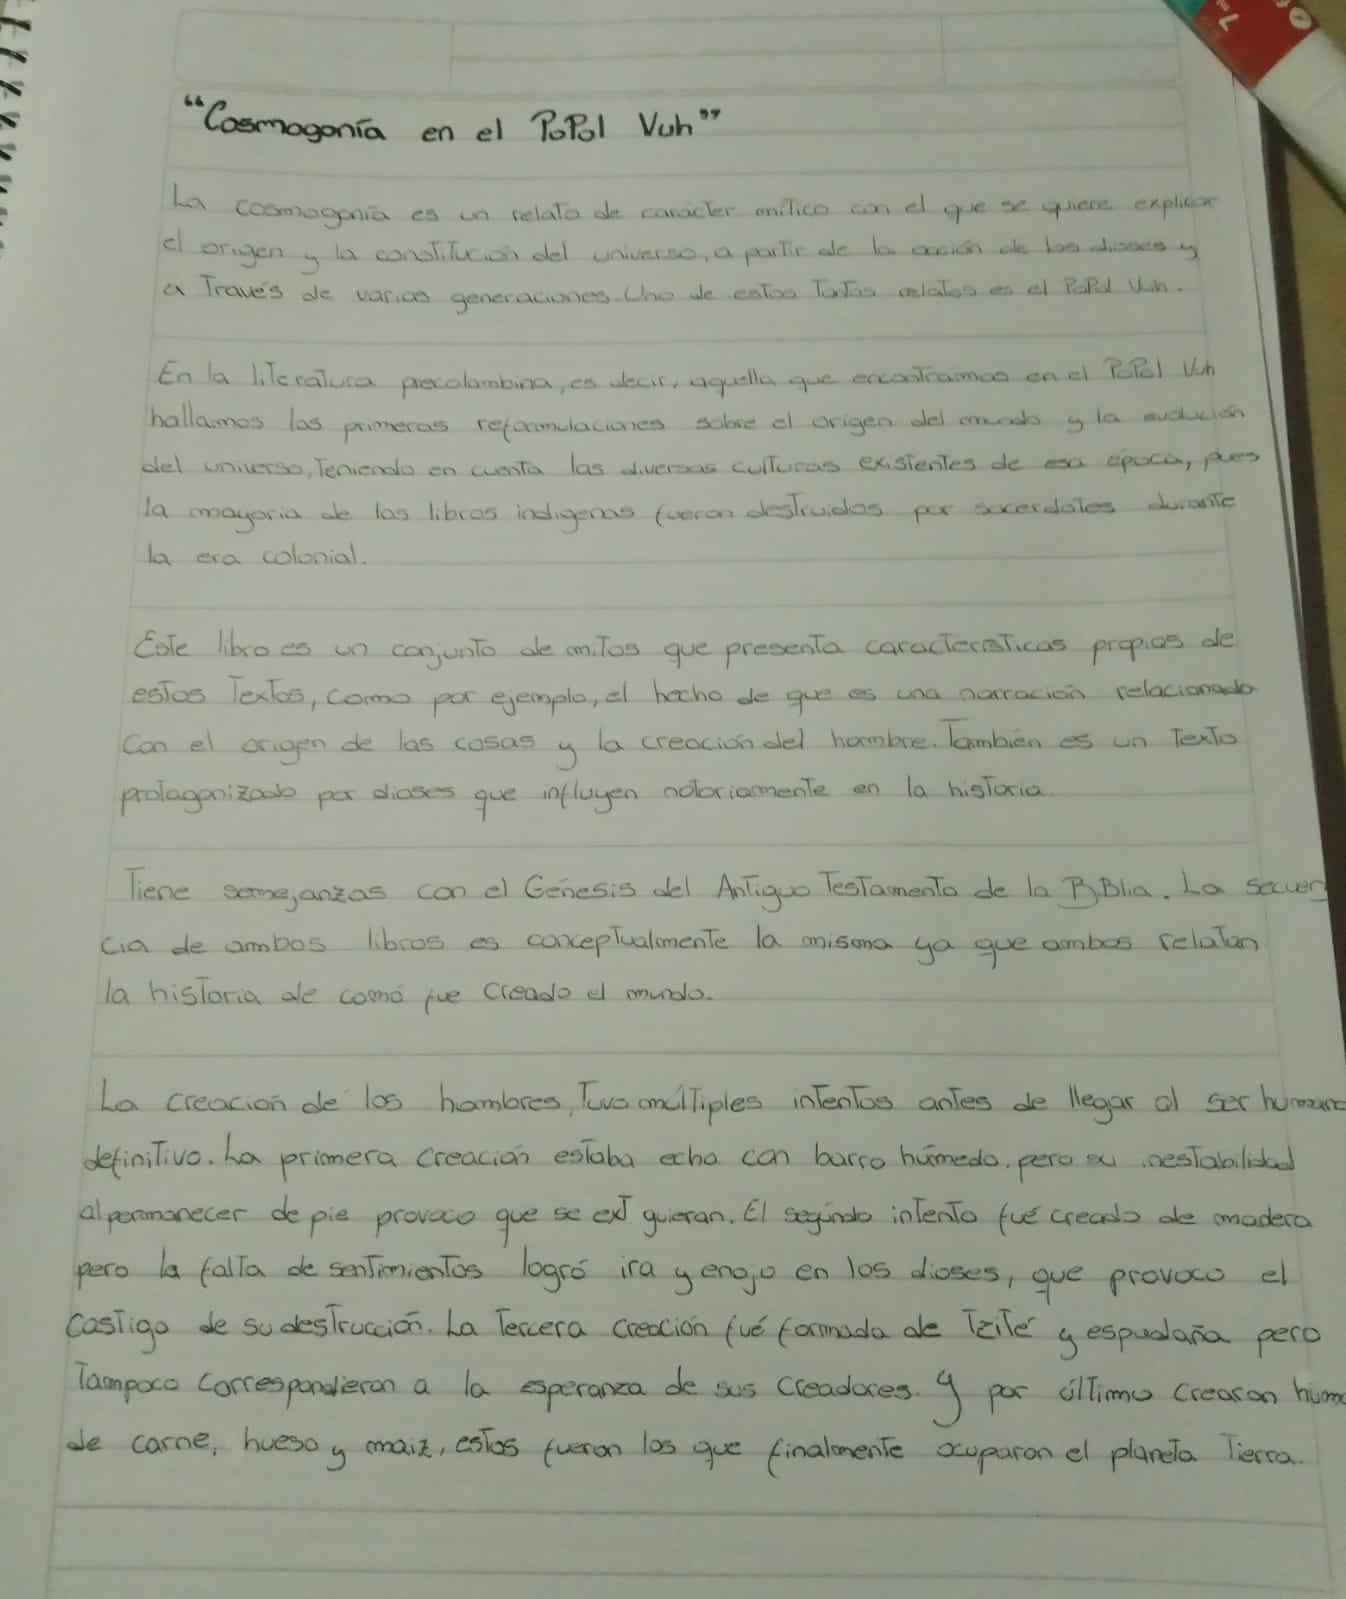 “Cosmogonía en el PoPol Vuh”
La cosmogonía es un relato de carácter mítico con el que se quiere explicar
el origen y la constitución del universo, a partir de la acción de los dioses y
a Través de varias generaciones. Uno de estos relatos es el PoPol Vuh.
En la literatura precolombina, es decir, aquella que encontramos en el PoPol Vuh
hallamos las primeras reformulaciones sobre el origen del mundo y la evolución
del universo, Teniendo en cuenta las diversas culturas existentes de esa época, pues
la mayoria de los libros indigenas fueron destruidos por sacerdotes durante
la era colonial.
Este libro es un conjunto de mitos que presenta características propias de
estos Textos, como por ejemplo, el hecho de que es una narración relacionada
Con el origen de las cosas y la creación del hombre. También es un Texto
protagonizado por dioses que influyen notoriamente en la historia.
Tiene semejanzas con el Génesis del Antiguo Testamento de la BíBlia. La secuen
cia de ambos libros es conceptualmente la misma ya que ambos relatan
la historia de como fue Creado el mundo.
La creación de los hombres, Tuvo múltiples intentos antes de llegar al ser humano
definitivo. La primera creación estaba echa con barro húmedo, pero su inestabilidad
al permanecer de pie provoco que se ext guieran. El segúndo intento fué creado de madera
pero la falta de sentimientos logró ira y enojo en los dioses, que provoco el
Castigo de su destrucción. La Tercera Creación fué formada de Tzité y espadaña pero
Tampoco Correspondieron a la esperanza de sus Creadores. y por último Crearon huma
de carne, hueso y maiz, estos fueron los que finalmente ocuparon el planeta Tierra.